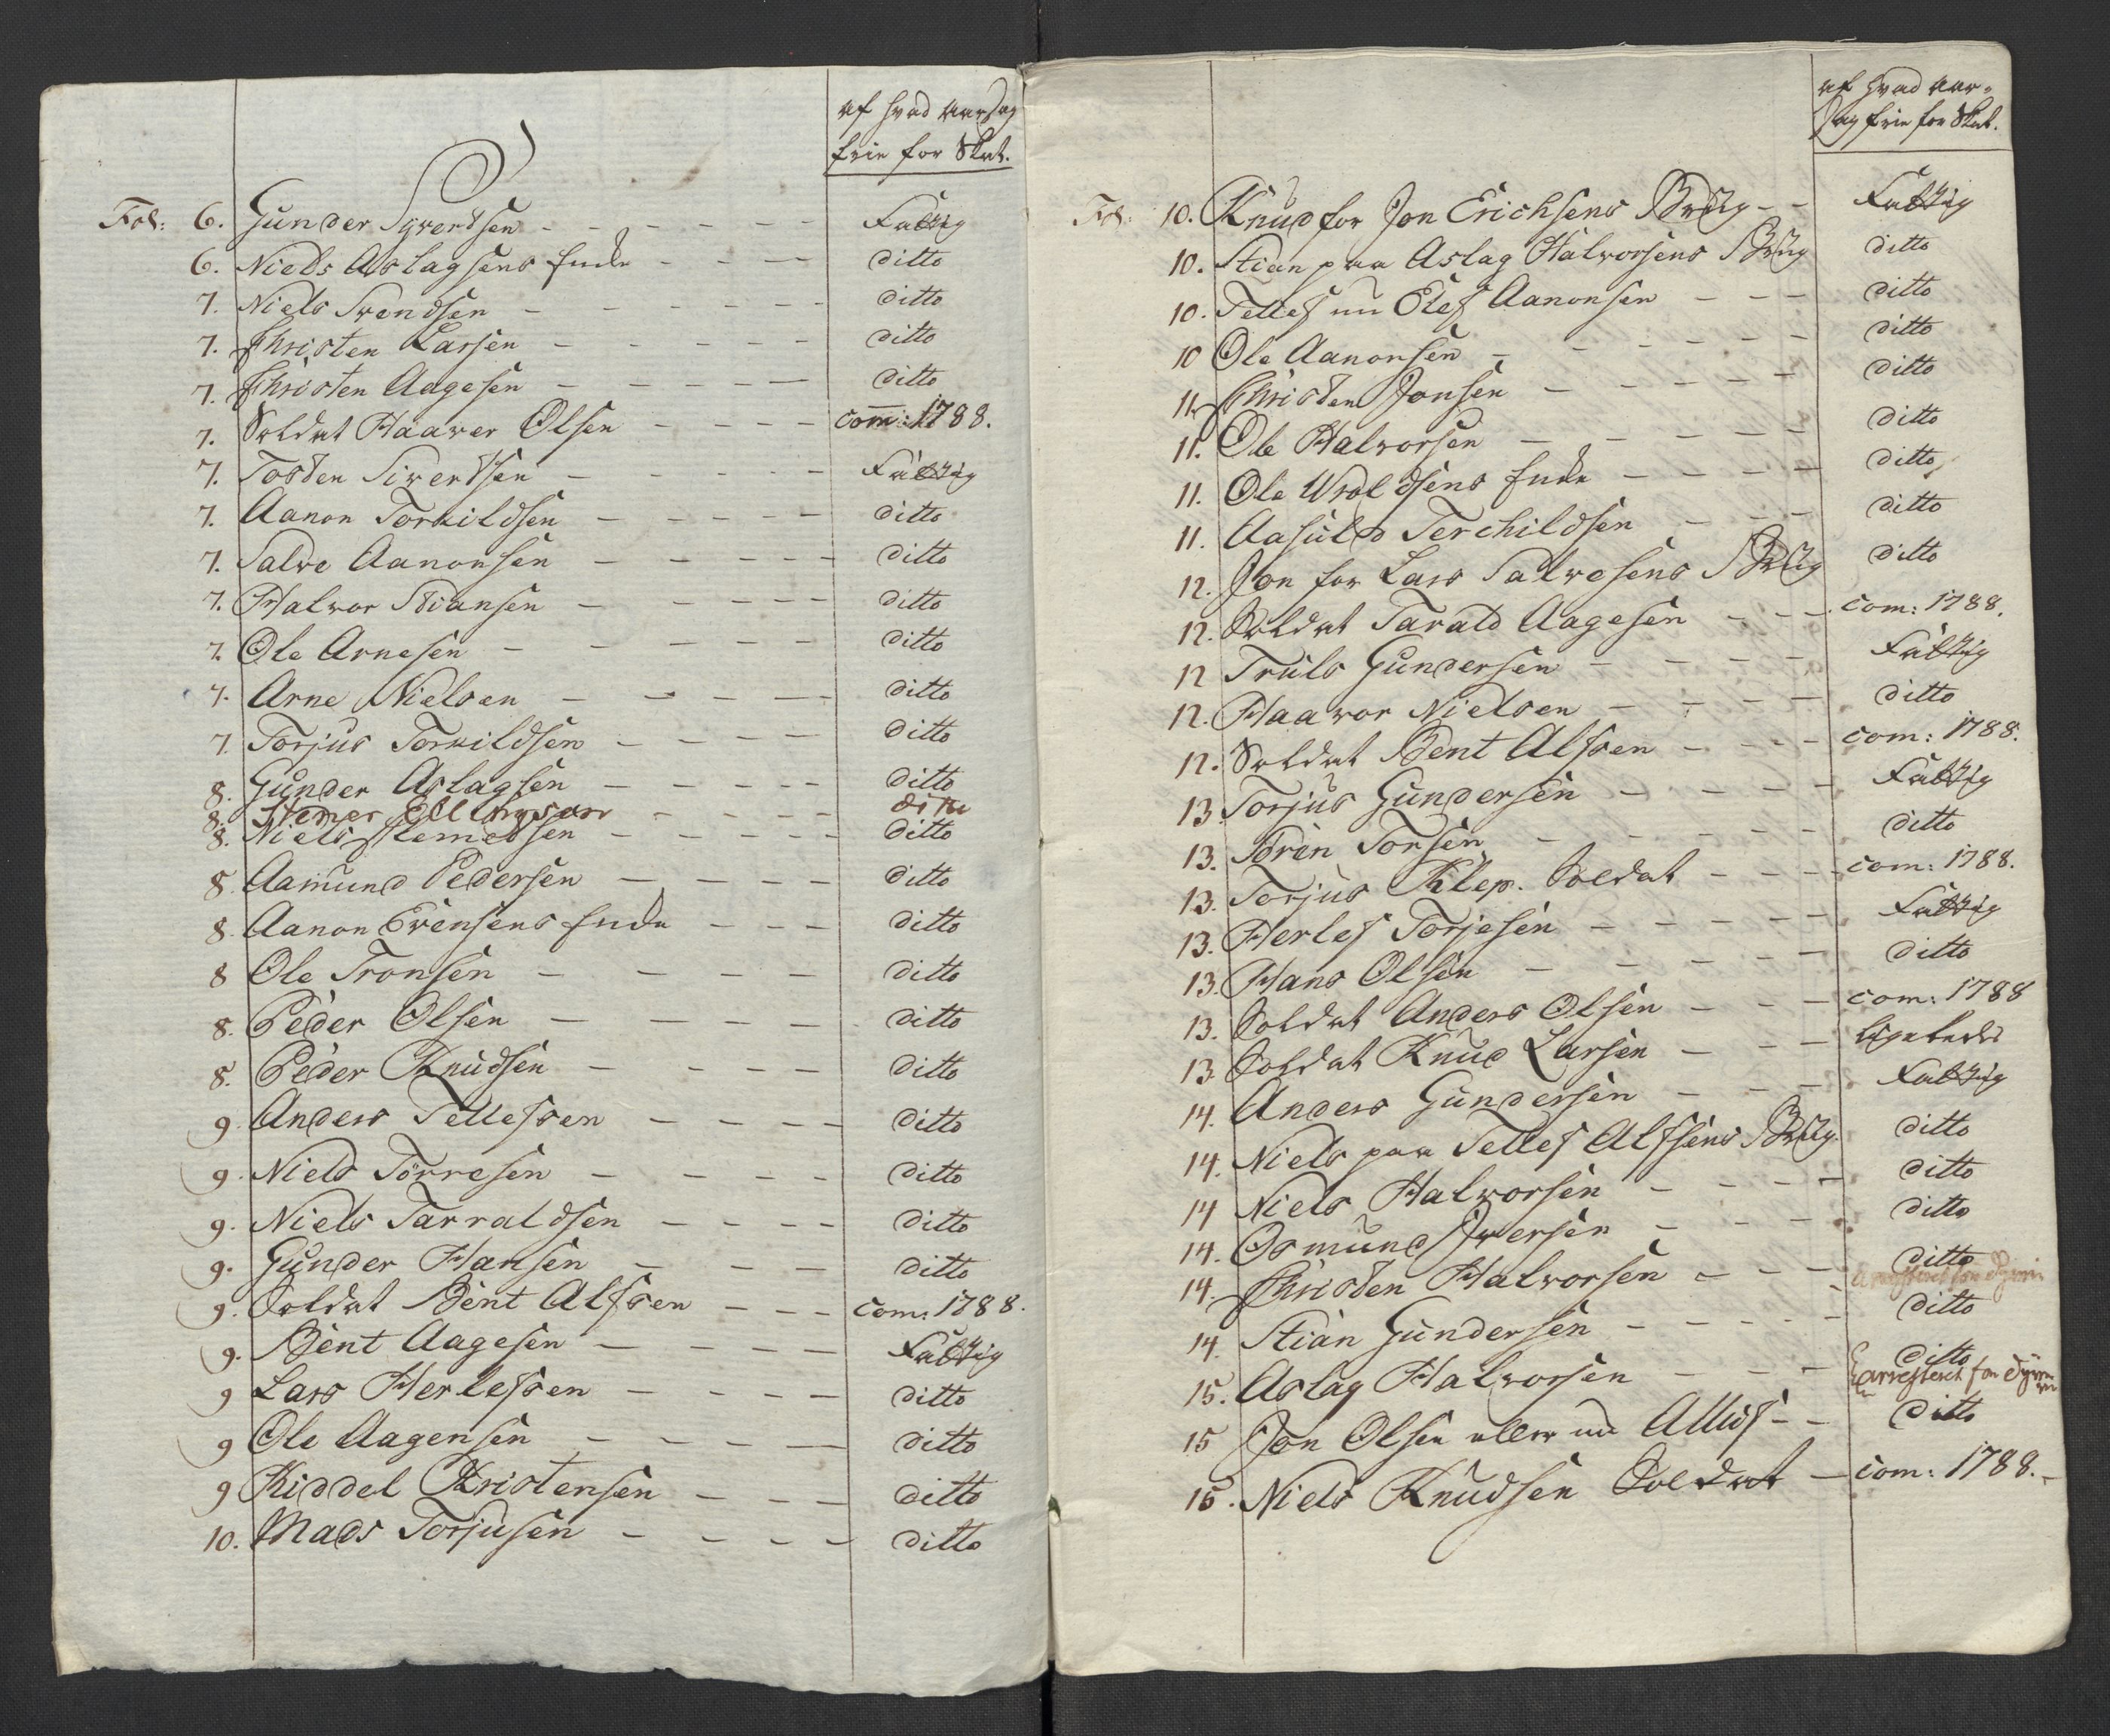 af hvad aarsag
frie for Skat.
Fol: 6. Gunder Syvertsen - - - - - Fattig
6. Niels Aslagsens Enke - - - - ditto
7. Niels Svendsen - - - - - ditto
7. Christen Larsen - - - - - ditto
7. Christen Aagesen - - - - - ditto
7. Soldat Haaver Olsen - - - - com: 1788.
7. Tosten Sivertsen - - - - - Fattig
7. Aanon Torkildsen - - - - - ditto
7. Salve Aanonsen - - - - - ditto
7. Halvor Stiansen - - - - - ditto
7. Ole Arnesen - - - - - ditto
7. Arne Nielsen - - - - - ditto
7. Torjus Torkildsen - - - - ditto
8. Gunder Aslagsen - - - - - ditto
8. Stener Ellingsen - - - - ditto
8. Niels Stenersen - - - - - ditto
8. Aamund Pedersen - - - - - ditto
8. Aanon Evensens Enke - - - ditto
8 Ole Tronsen - - - - ditto
8. Peder Olsen - - - - - ditto
8. Peder Knudsen - - - - ditto
9. Anders Tellefsen - - - - ditto
9. Niels Torresen - - - - ditto
9. Niels Tarraldsen - - - - ditto
9. Gunder Hansen - - - ditto
9. Soldat Bent Alfsen - - - com: 1788.
9. Bent Aagesen - - - - Fattig
9 Lars Herlefsen - - - - ditto
9 Ole Aagensen - - - - - ditto
9 Kiddel Kristensen - - - ditto
10. Mads Torjusen - - - - ditto
af hvad aar-
sag frie for Skat.
Fol: 10. Knud for Jon Erichsens Brug - - Fattig
10. Stian paa Aslag Halvorsens Brug ditto
10. Tellef nu Elef Aanonsen - - - ditto
10 Ole Aanonsen - - - - - - ditto
11. Christen Jonsen - - - - - ditto
11. Ole Halvorsen - - - - - ditto
11. Ole Uroldsens Enke - - - - ditto
11. Aasuld Terchildsen - - - ditto
12. Jon for Lars Salvesens Brug ditto
12. Soldat Tarald Aagesen - - - com: 1788.
12 Truls Gundersen - - - - Fattig
12. Haavor Nielsen - - - - ditto
12. Soldat Bent Alfsen - - - - com: 1788.
13 Torjus Gundersen - - - - - Fattig
13. Sören Torsen - - - - - - ditto
13. Torjus Klep. Soldat - - - - com: 1788.
13. Herlef Torjesen - - - - - Fattig
13. Hans Olsen - - - - - ditto
13. Soldat Anders Olsen - - - com: 1788
13 Soldat Knud Larsen - - - ligeledes
14. Anders Gundersen - - - Fattig
14. Niels paa Tellef Alfsens Brug. ditto
14 Niels Halvorsen - - - - ditto
14. Osmund Iversen - - - ditto
14. Christen Halvorsen - - - - ditto
arresteret for Tyverie
14. Stian Gundersen - - - - - ditto
15. Aslag Halvorsen - - - ditto
arresteret for Tyverie
15 Jon Olsen eller nu - - ditto
15. Niels Knudsen Soldat - com: 1788. -